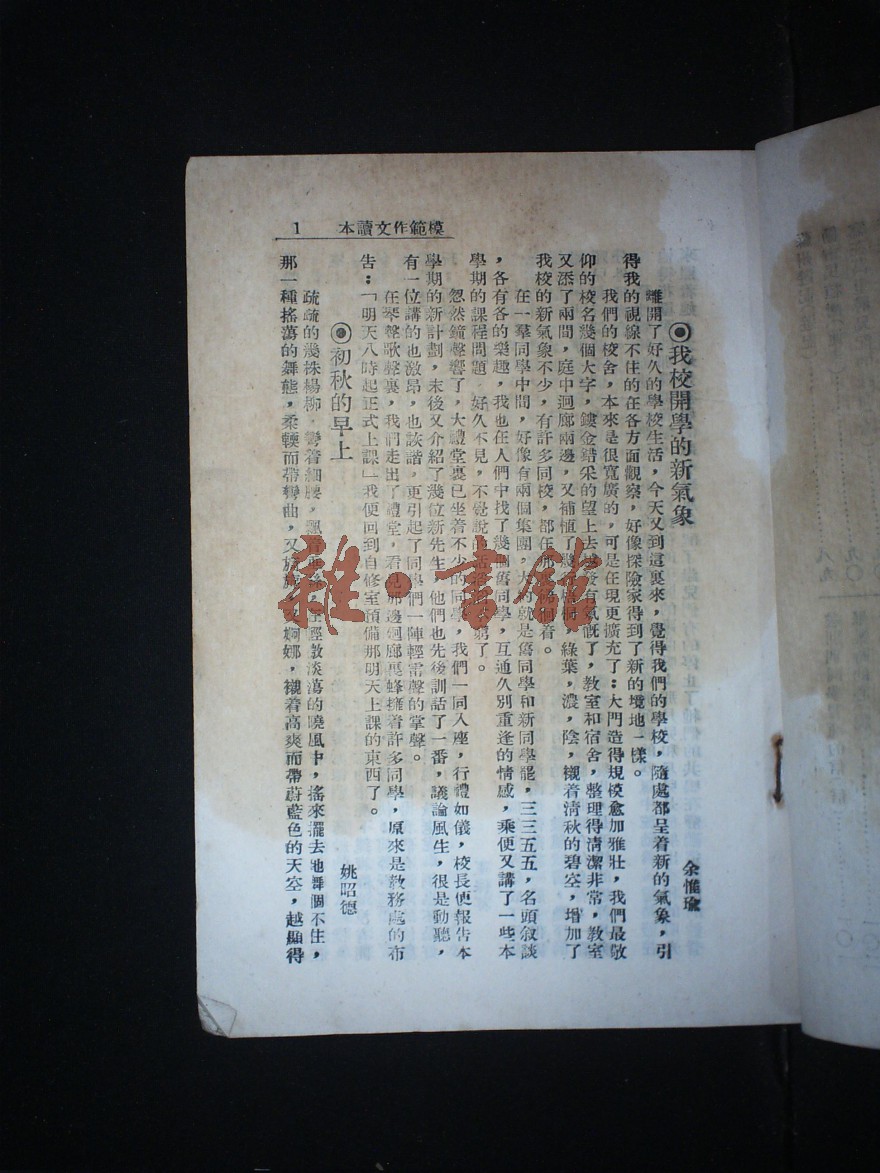 模範作文讀本 1
◉我校開學的新氣象
余惟瑜
離開了好久的學校生活，今天又到這裏來，覺得我們的學校，隨處都呈着新的氣象，引
得我的視線不住的在各方面觀察，好像探險家得到了新的境地一樣。
我們的校舍，本來是很寬廣的，可是在現更擴充了：大門造得規模愈加雅壯，我們最敬
仰的校名幾個大字，鏤金錯采的望上去越發有氣慨了，教室和宿舍，整理得清潔非常，教室
又添了兩間，庭中迴廊兩邊，又補植了幾 樹，綠葉，濃，陰，襯着清秋的碧空，增加了
我校的新氣象不少，有許多同校，都在那 音。
在一羣同學中間，好像有兩個集團，大 就是舊同學和新同學罷，三三五五，名頭叙談
，各有各的樂趣，我也在人們中找了幾個舊同學，互通久別重逢的情感，乘便又講了一些本
學期的課程問題 好久不見，不覺說的話 窮了。
忽然鐘聲響了，大禮堂裏已坐着不少的同學，我們一同入座，行禮如儀，校長便報告本
學期的新計劃，末後又介紹了幾位新先生 他們也先後訓話了一番，議論風生，很是動聽，
有一位講的也激昂，也詼諧，更引起了同學們一陣輕雷聲的掌聲。
在琴聲歌聲裏，我們走出了禮堂，看見那邊迴廊裏蜂擁着許多同學，原來是教務處的布
告：「明天八時起正式上課」我便回到自修室預備那明天上課的東西了。
◉初秋的早上
姚昭德
疏疏的幾株楊柳，彎着細腰，飄着 淡蕩的曉風中，搖來擺去地舞個不住，
那一種搖蕩的舞態，柔輭而帶彎曲，又 婀娜，襯着高爽而帶蔚藍色的天空，越顯得
雜·書館